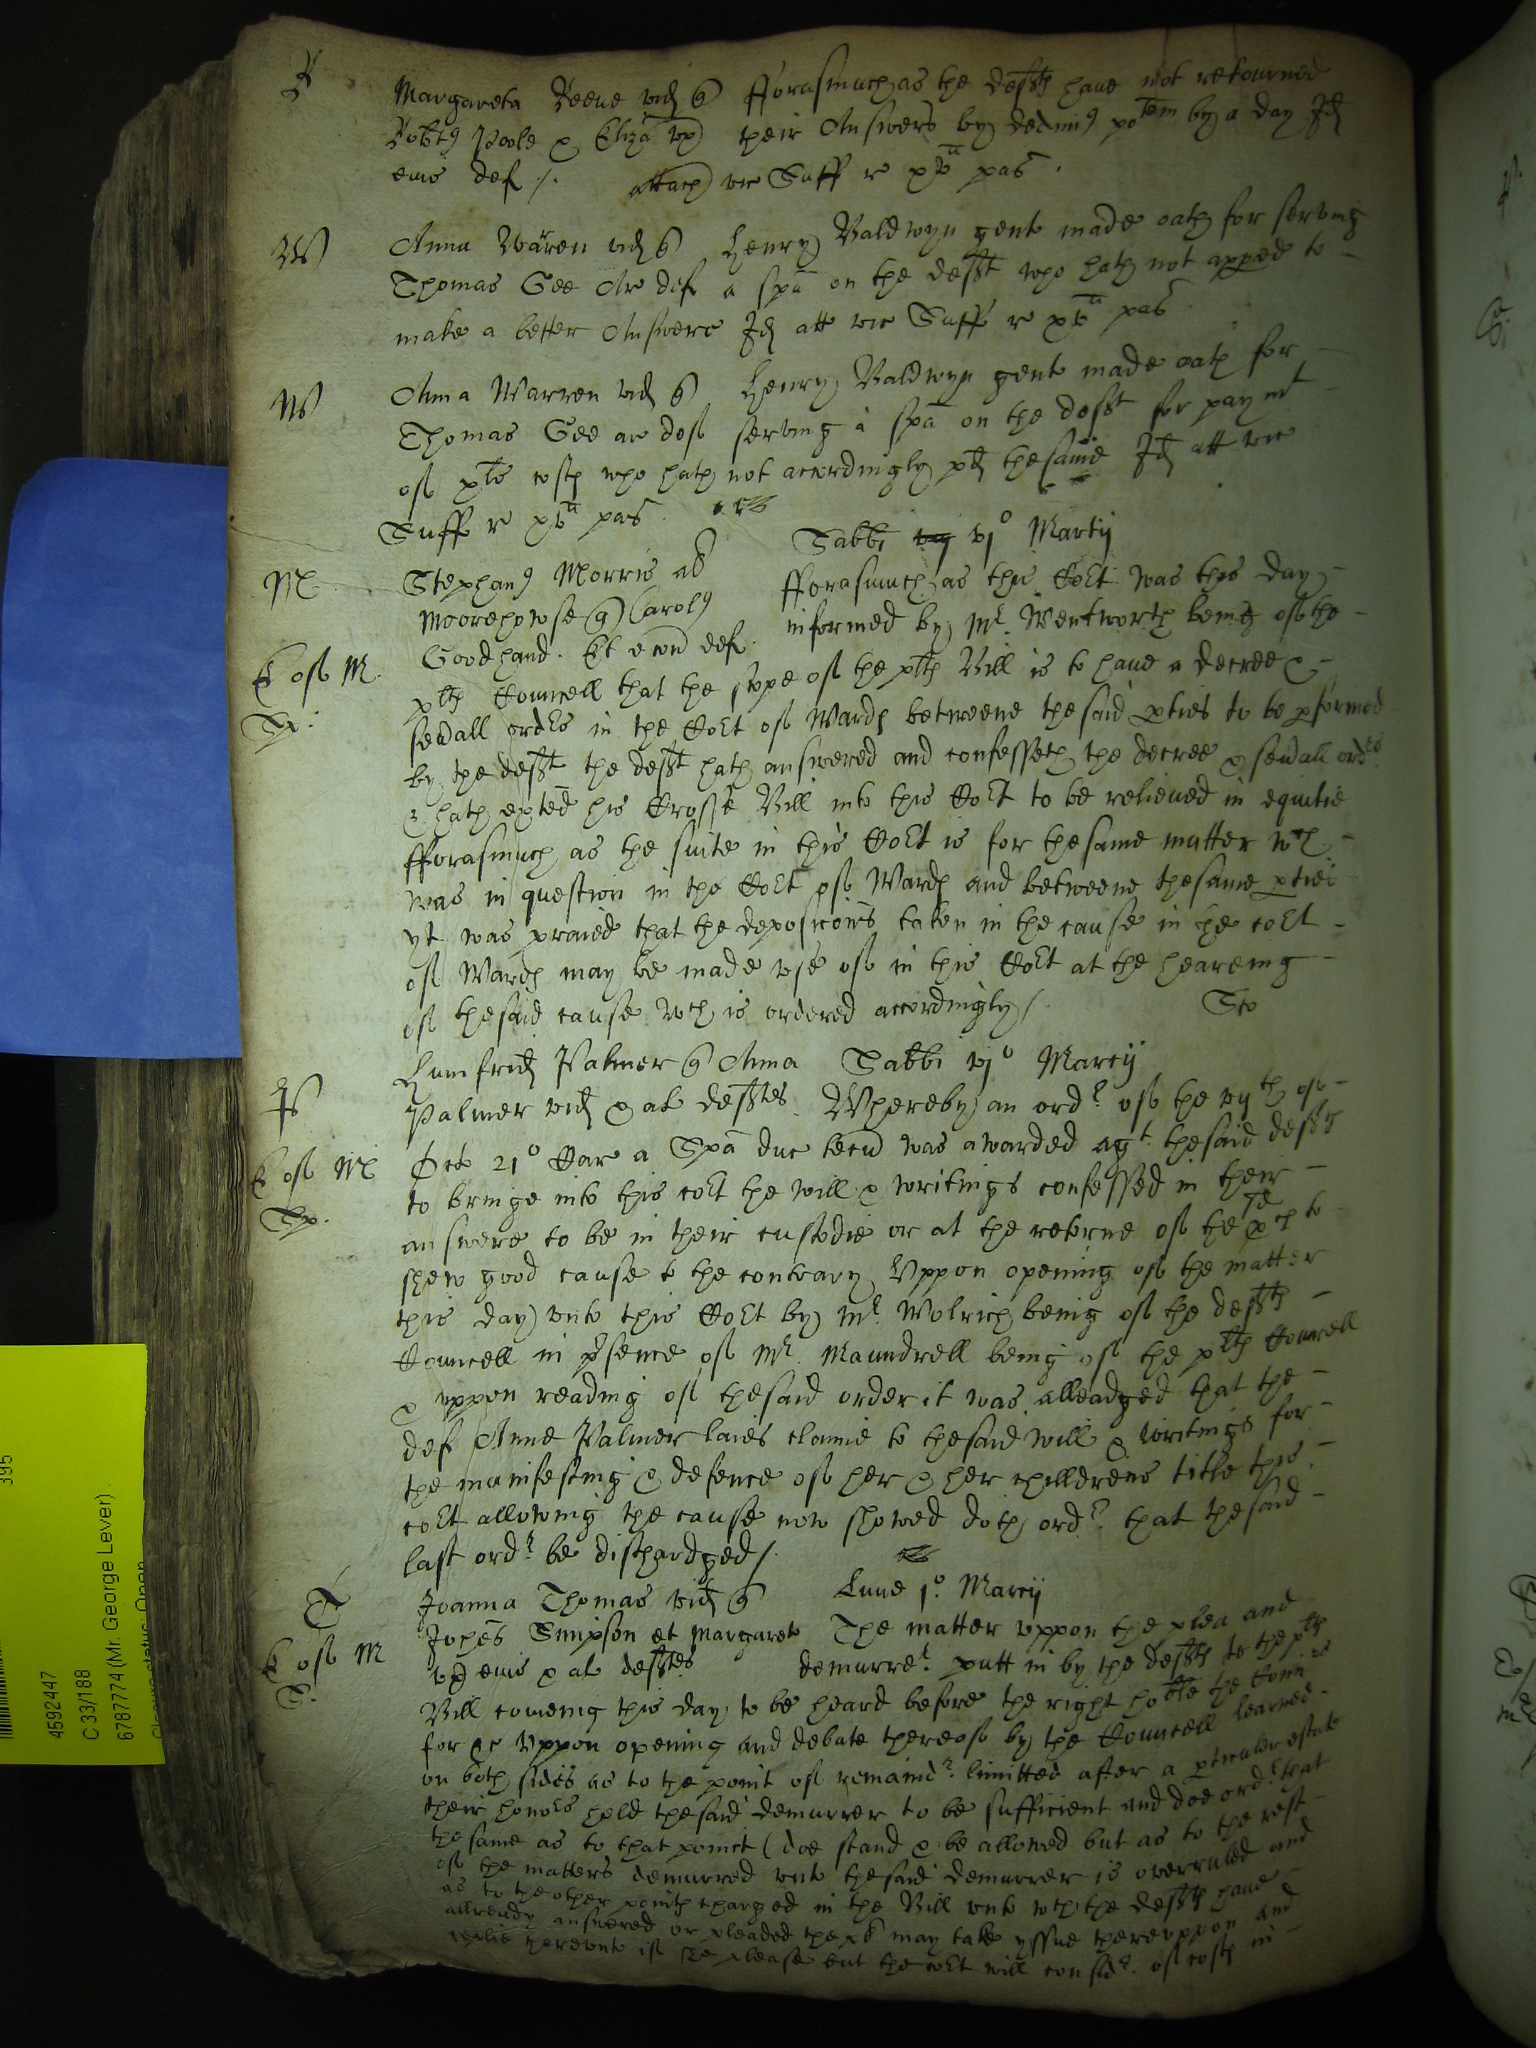 R
Margareta Reeve vid q fforasmuch as the deftes have not retourned
Robtus Poole & Eliza ux their Answers by dedimus potem by a day Id
eius def /. attach vic Suff r xva pas
W
Anna Warren vid q Henry Baldwyn gent made oath for serving
Thomas Gee Ar def a spa on the deft who hath not appeed to
make a better Answere Id att vic Suff r xva pas
W
Anna Warren vid q Henry Baldwyn gent made oath for
Thomas Gee ar def serving a spa on the deft for paymt
of plts costs who hath not accordingly pd the same Id att vic
Suff r xva pas
Sabbi vjo Martij
M
Stephanus Morris als fforasmuch as this Cort was this day
Moorehowse q Carolus informed by Mr. Wentworth being of the
Goodhand. Et econ def.
E of M
plts Councell that the scope of the plts Bill is to have a decree &
Tp.
sevall ordrs in the Cort of Wards betweene the said pties to be pformed
by the deft the deft hath answered and confesseth the decree & sevall ordrs
& hath exted his Crosse Bill into this Cort to be relieved in equitie
fforasmuch as the suite in this Cort is for the same matter wch
was in question in the Cort of Wards and betweene the same pties
yt was praied that the deposicons taken in the cause in the cort
of Wards may be made use of in this Cort at the heareing
of the said cause wch is ordered accordingly /.
Humfrid Palmer q Anna Sabbi vjo Marcij
P
Palmer vid & al deftes Whereby an ordr of the vijth of
E of M
Octo 21o Car a Spa duc tecu was awarded agt the said defts
Tp.
to bringe into this cort the will & writings confessed in their
answere to be in their custodie or at the retorne of the pch to
shew good cause to the contrary Uppon opening of the matter
this day unto this Cort by Mr. Wolrich being of the defts
Councell in psence of Mr. Maundrell being of the plts Councell
& uppon reading of the said order it was alleadged that the
def Anne Palmer laies clayme to the said will & writings for
the manifesting & defence of her & her childrens title this
cort allowing the cause now shewed doth ordr. that the said
last ordr be dischardged /.
T
Joanna Thomas vid q Lune jo. Marcij
Johes Simpson et Margaret The matter uppon the plea and
E of M
ux eius & al deftes demurrer. putt in by the defts to the plts
T.
Bill comeing this day to be heard before the right hoble the Comrs
for &c Uppon opening and debate thereof by the Councell learned
on both sides as to the point of remaindr. limitted after a pticuler estate
their honors hold the said demurrer to be sufficient and doe ordr that
the same as to that poinct doe stand & be allowed but as to the rest
of the matters demurred unto the said demurrer is overruled and
as to the other points charged in the Bill unto wch the defts have
allready answered or pleaded the plt may take yssue thereuppon and
replie thereunto if shee please but the cort will considr. of costs in
395
4592447
C 33/188
6787774 (Mr. George Lever)
Closure status: Open